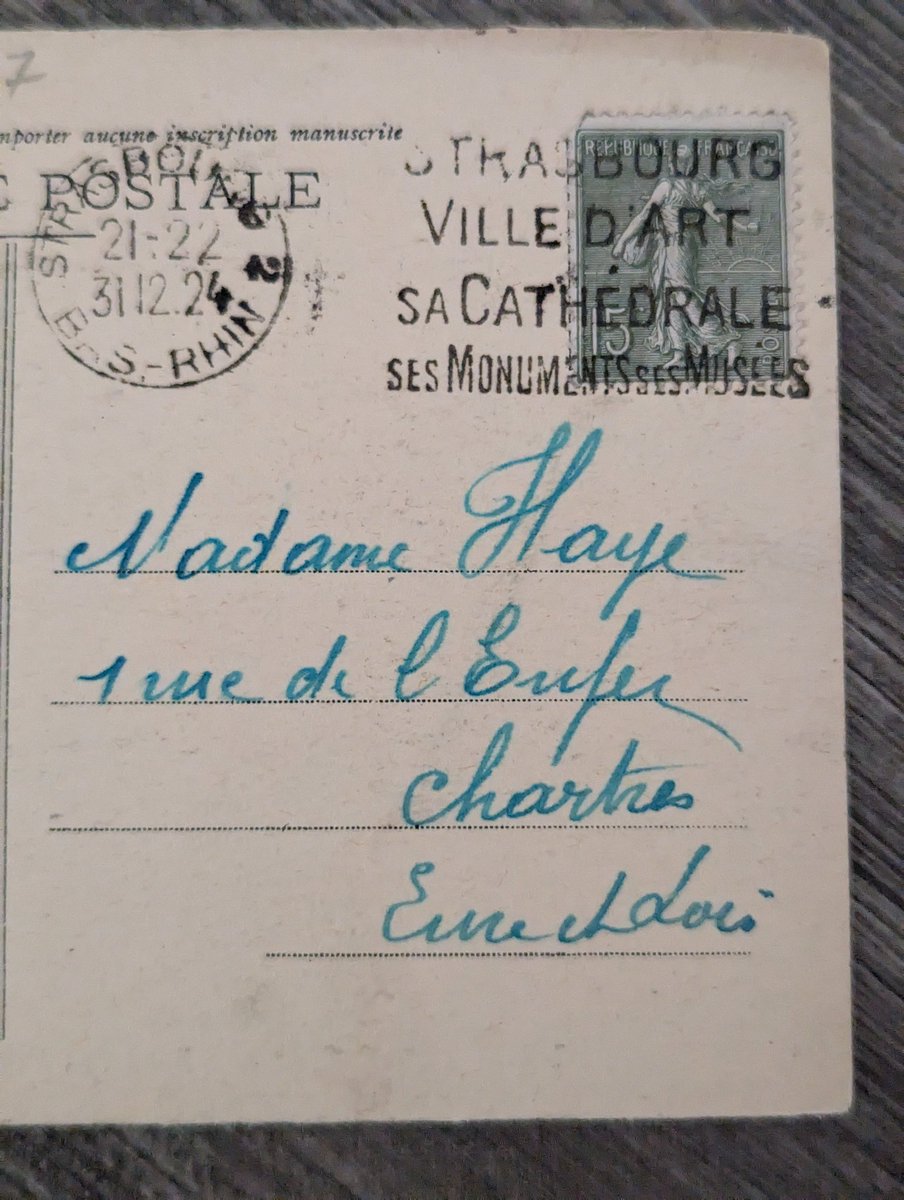 7
mporter aucune inscription manuscrite
E POSTALE
STRASBOURG
21-22
31 12.24
BAS-RHIN
STRASBOURG
VILLE D'ART
SA CATHÉDRALE
SES MONUMENTS SES MUSÉES
REPUBLIQUE FRANÇAISE
15
Madame Haye
1 rue de l'Enfer
Chartres
Eure et Loir